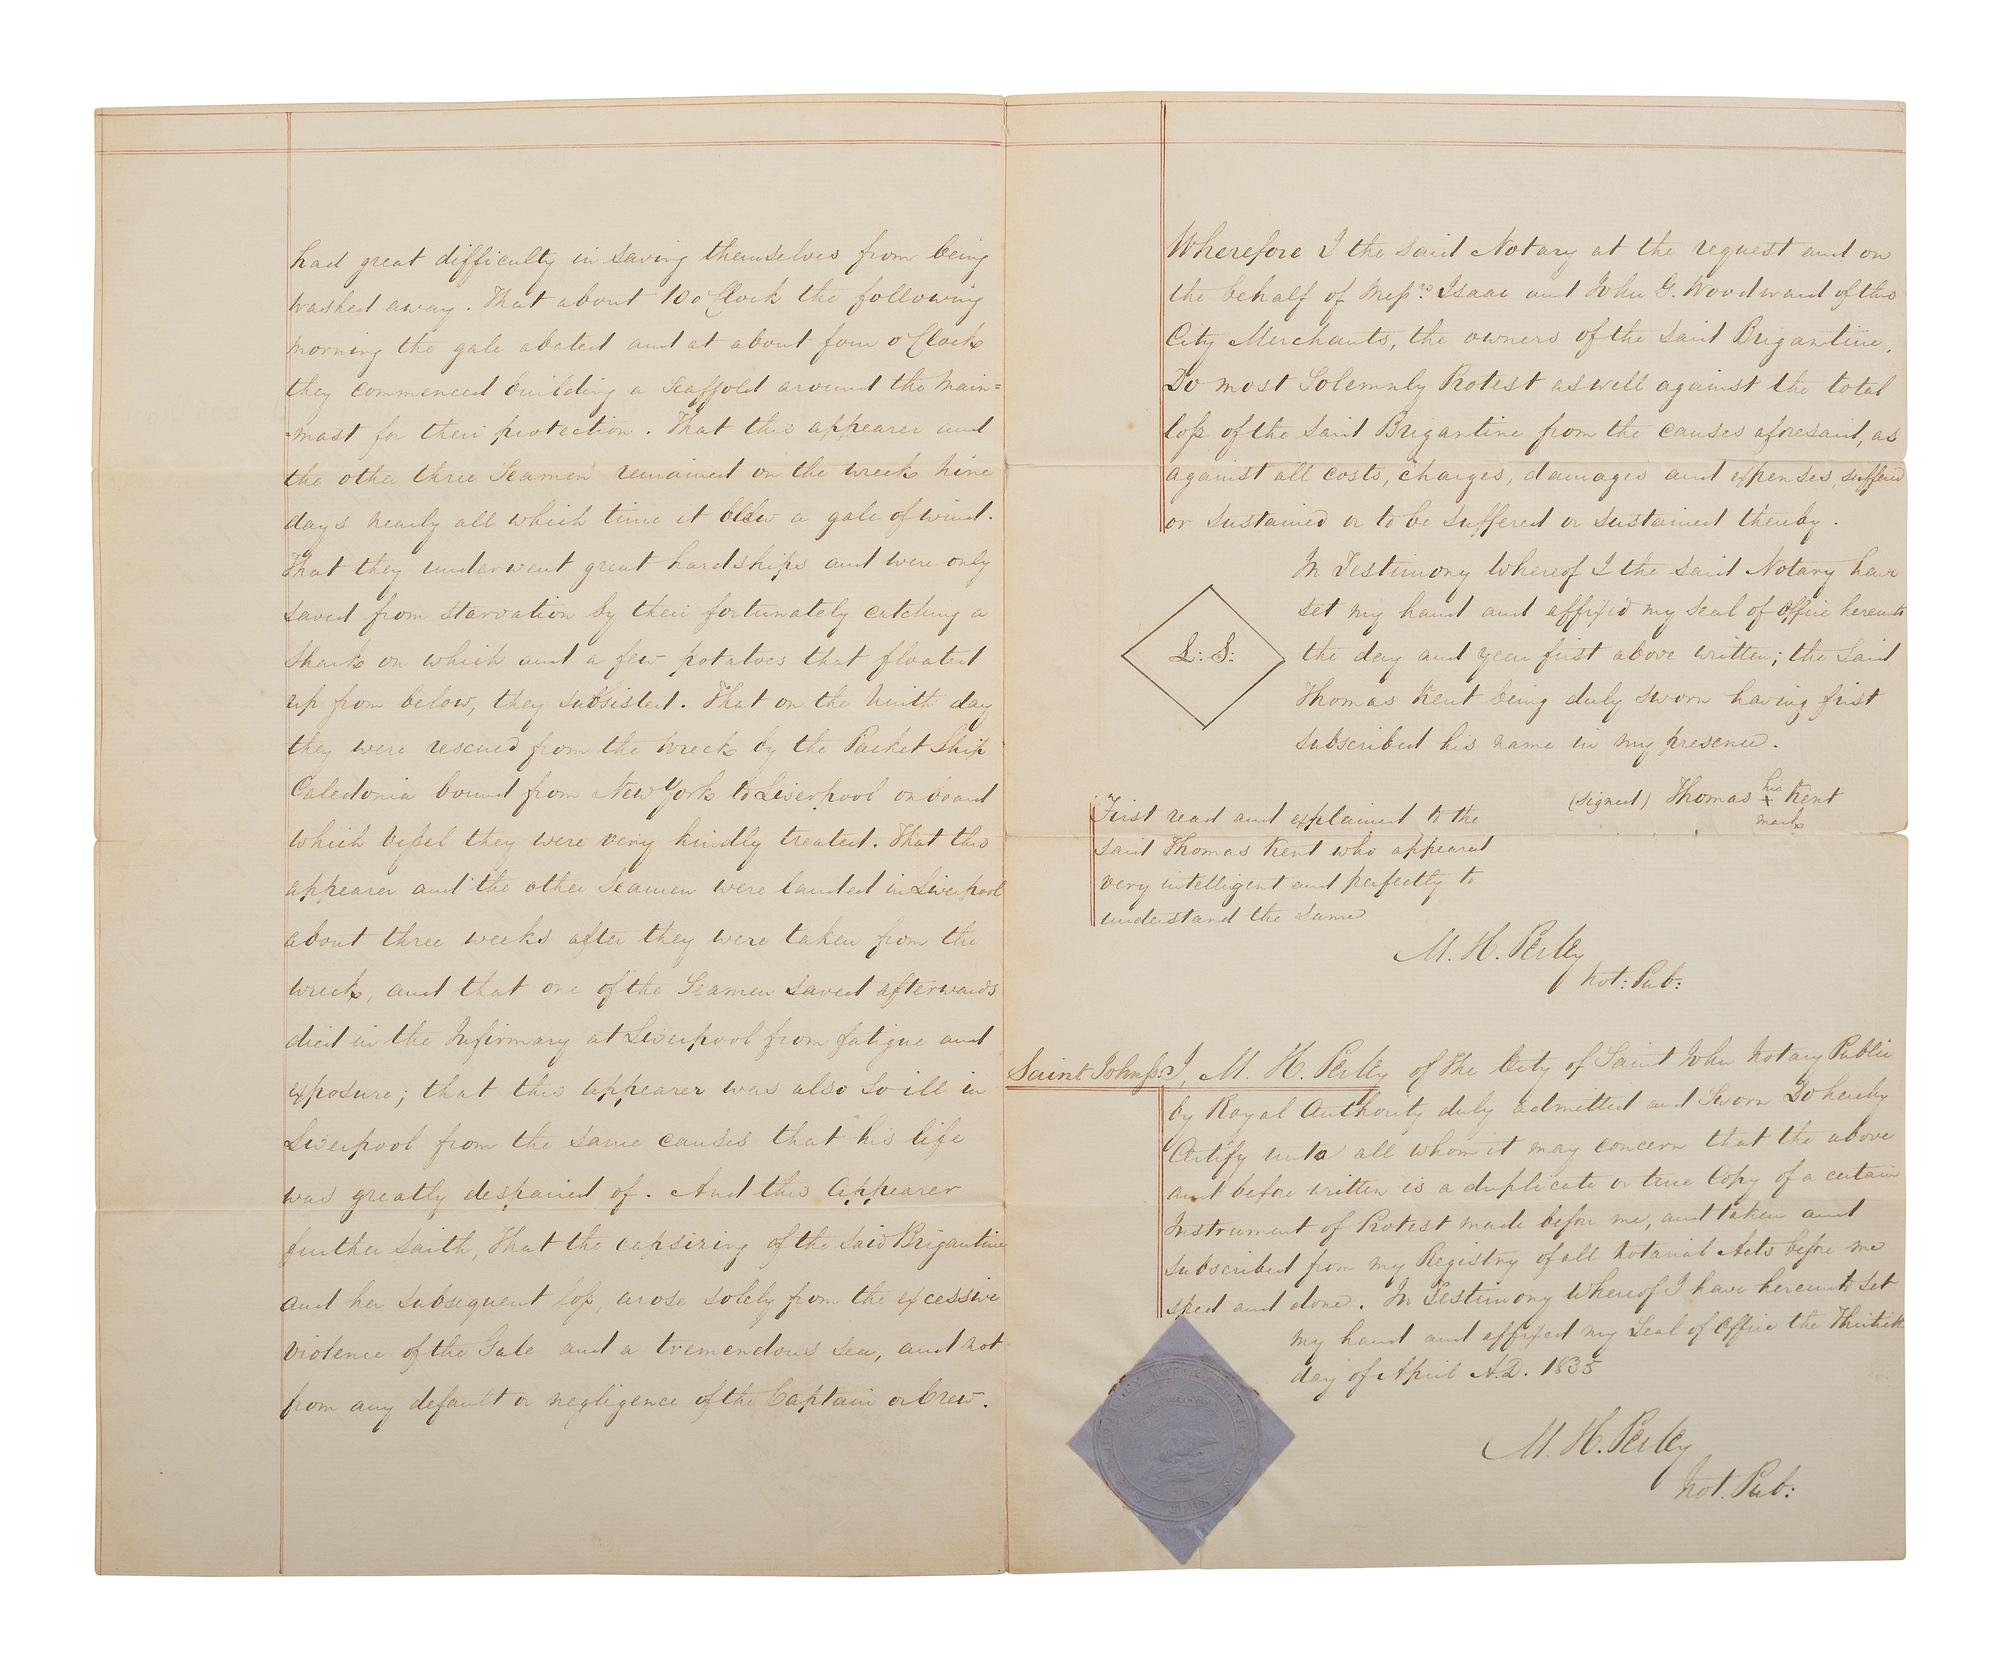 had great difficulty in saving themselves from being
washed away. That about 10 o'Clock the following
morning the gale abated and at about four o'Clock
they commenced building a Scaffold around the Main=
=mast for their protection. That this appearer and
the other three Seamen remained on the wreck nine
days nearly all which time it blew a gale of wind.
That they underwent great hardships and were only
saved from starvation by their fortunately catching a
Shark on which and a few potatoes that floated
up from below, they subsisted. That on the ninth day
they were rescued from the wreck by the Packet Ship
Caledonia bound from New York to Liverpool on board
which vessel they were very kindly treated. That this
appearer and the other Seamen were landed in Liverpool
about three weeks after they were taken from the
wreck, and that one of the Seamen saved afterwards
died in the Infirmary at Liverpool from fatigue and
exposure; that this appearer was also so ill in
Liverpool from the same causes that his life
was greatly despaired of. And this Appearer
further saith, That the capsizing of the said Brigantine
and her subsequent loss, arose solely from the excessive
violence of the Gale and a tremendous sea, and not
from any default or negligence of the Captain or Crew.
Wherefore I the said Notary at the request and on
the behalf of Messrs. Isaac and John G. Woodward of this
City Merchants, the owners of the said Brigantine,
Do most Solemnly Protest as well against the total
loss of the said Brigantine from the causes aforesaid, as
against all costs, charges, damages and expenses, suffered
or sustained or to be suffered or sustained thereby.
In Testimony Whereof I the said Notary have
set my hand and affixed my seal of Office hereunto
L: S:
the day and year first above written; the said
Thomas Kent being duly sworn having first
subscribed his name in my presence.
(signed) Thomas his + mark Kent
First read and explained to the
said Thomas Kent who appeared
very intelligent and perfectly to
understand the same
M. H. Perley
Not: Pub:
Saint John ss: I, M. H. Perley of the City of Saint John Notary Public
by Royal Authority duly admitted and Sworn Do hereby
Certify unto all whom it may concern that the above
and before written is a duplicate or true Copy of a certain
Instrument of Protest made before me, and taken and
subscribed from my Registry of all Notarial Acts before me
sped and done. In Testimony Whereof I have hereunto set
my hand and affixed my Seal of Office the Thirtieth
day of April A.D. 1835
M. H. Perley
Not. Pub: